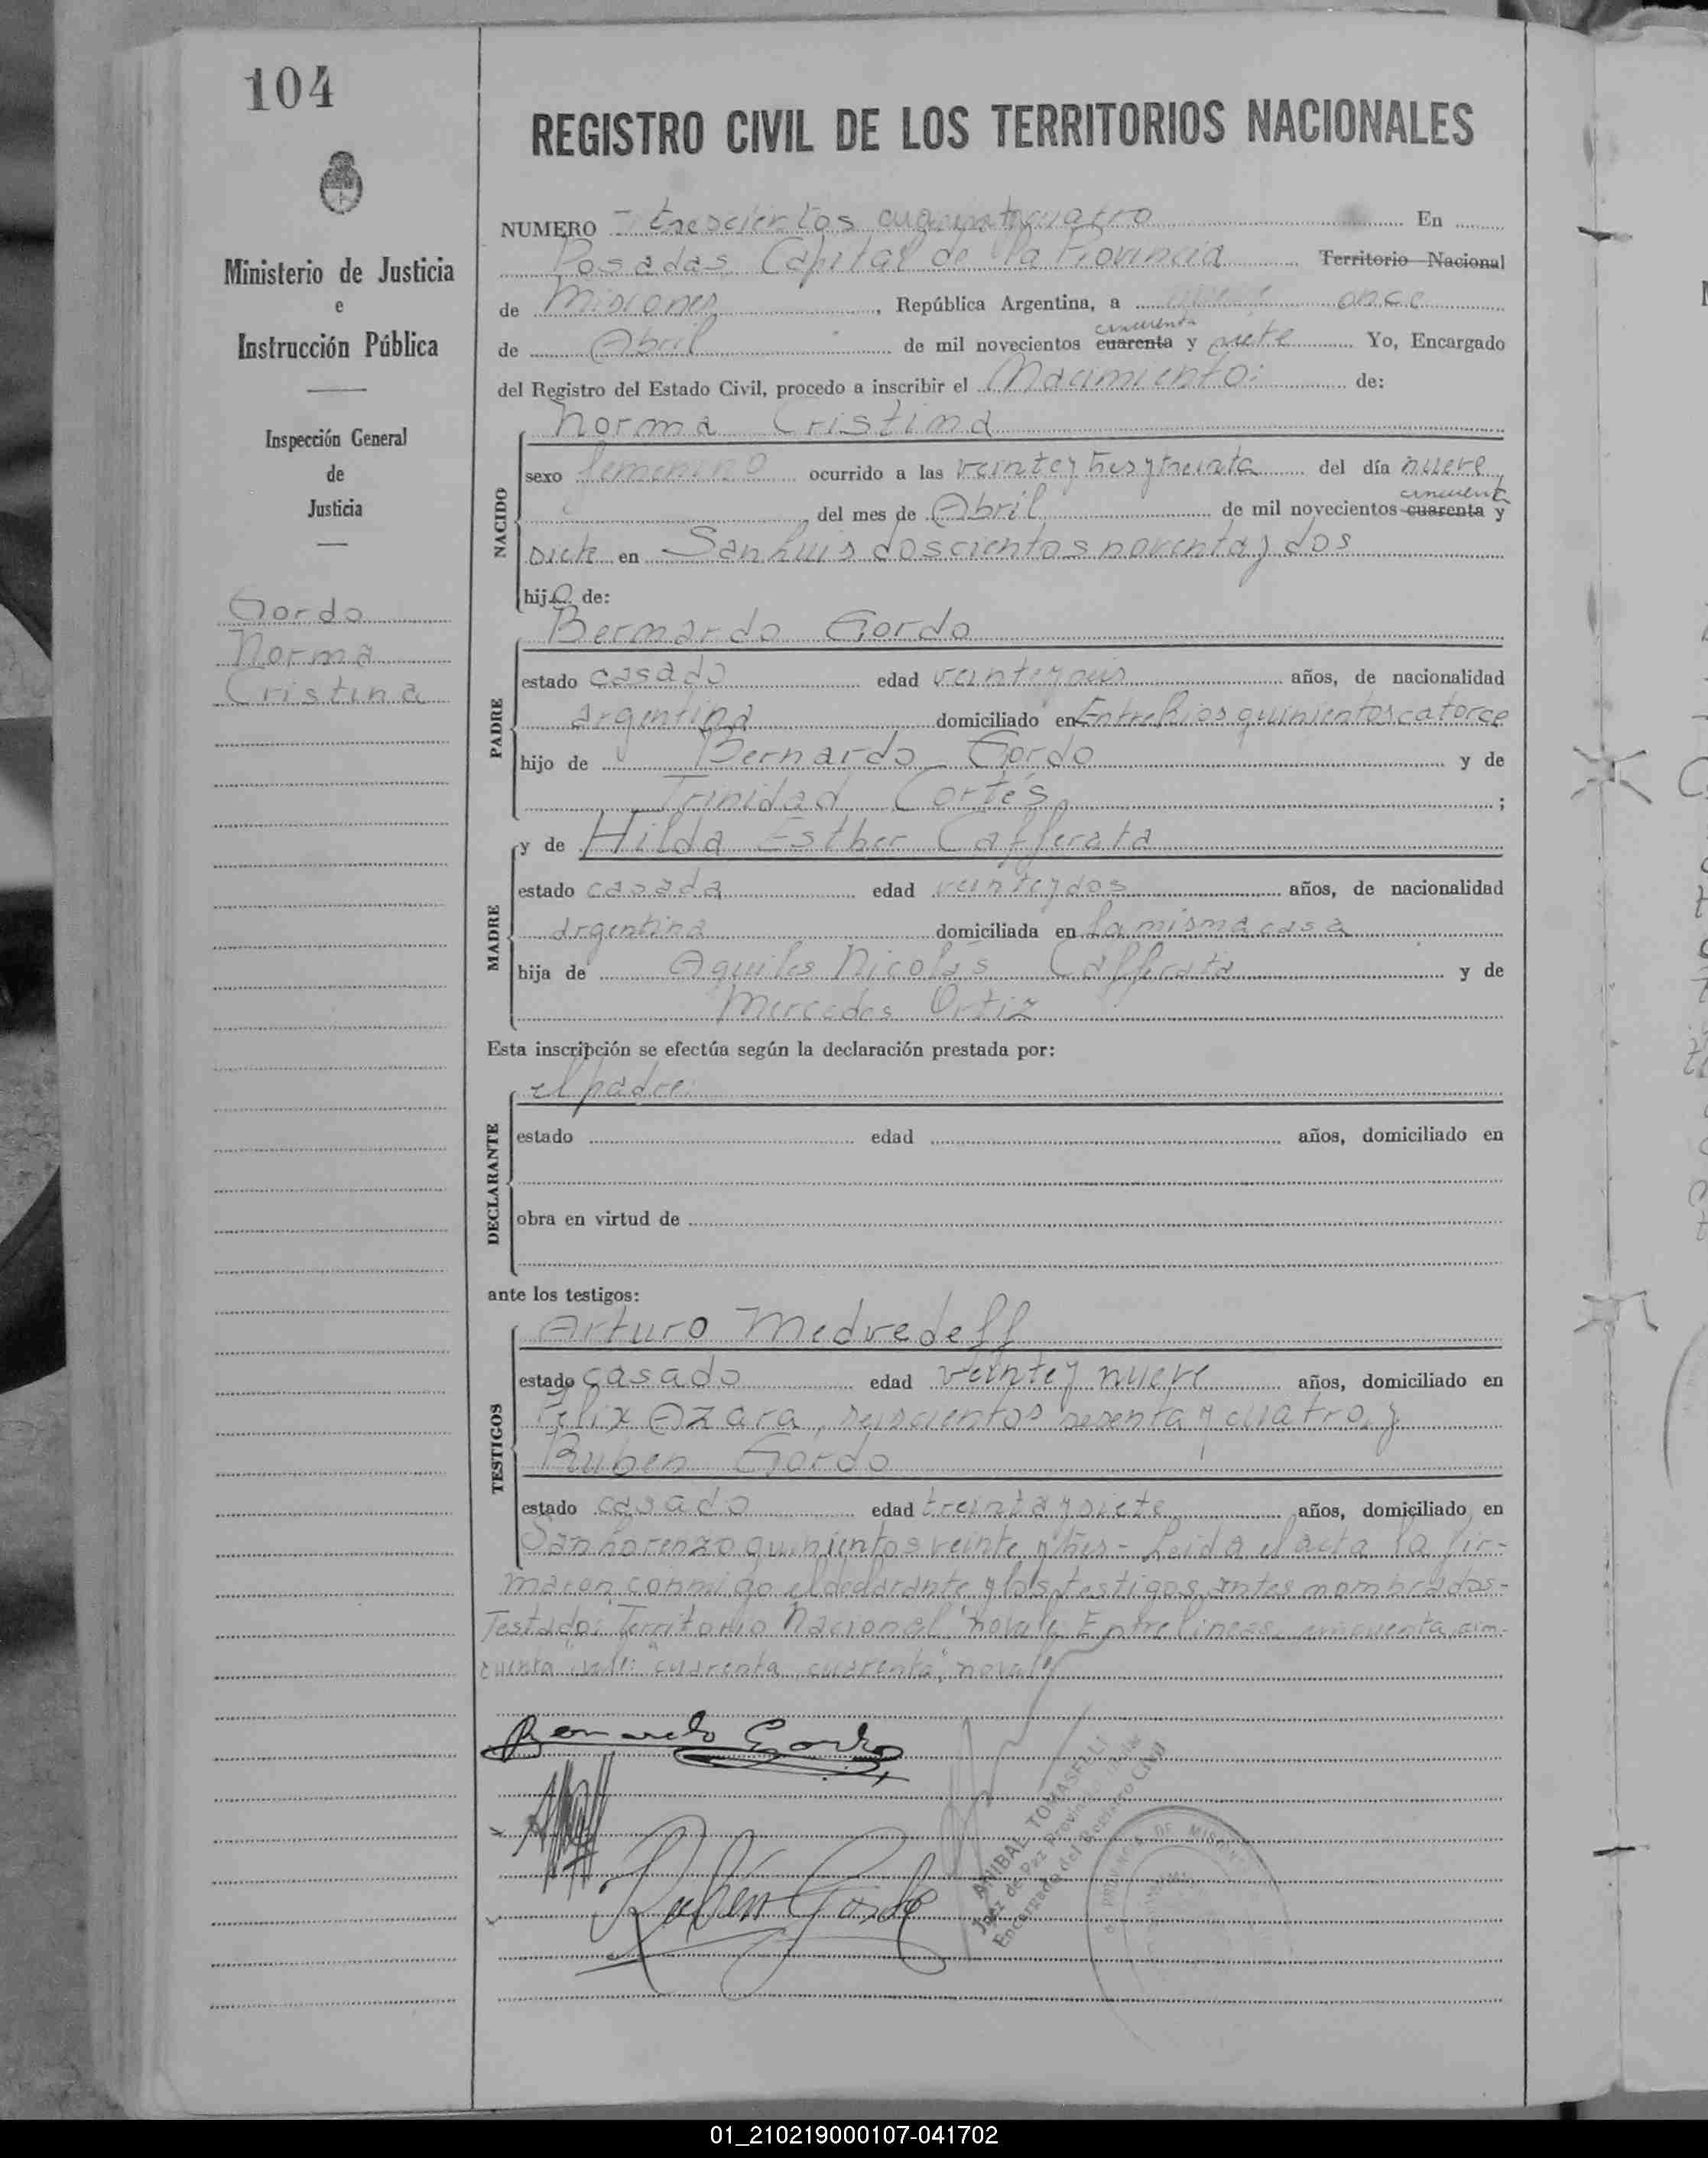 104
REGISTRO CIVIL DE LOS TERRITORIOS NACIONALES
Ministerio de Justicia
e
Instrucción Pública
Inspección General
de
Justicia
Gordo
Norma
Cristina
NUMERO trescientos cuarentaycuatro En
Posadas Capital de la Provincia Territorio Nacional
de Misiones, República Argentina, a once
cincuenta
de Abril de mil novecientos cuarenta y siete Yo, Encargado
del Registro del Estado Civil, procedo a inscribir el Nacimiento: de:
NACIDO
Norma Cristina
sexo femenino ocurrido a las veinteytresytreinta del día nueve
cincuenta
del mes de Abril de mil novecientos cuarenta y
siete en San Luis doscientos noventa y dos
hija de:
PADRE
Bernardo Gordo
estado casado edad veinteyseis años, de nacionalidad
argentina domiciliado en Entre Rios quinientos catorce
hijo de Bernardo Gordo y de
Trinidad Cortés ;
MADRE
y de Hilda Esther Cafferata
estado casada edad veinteydos años, de nacionalidad
argentina domiciliada en la misma casa
hija de Aquiles Nicolás Cafferata y de
Mercedes Ortiz
Esta inscripción se efectúa según la declaración prestada por:
DECLARANTE
el padre:
estado edad años, domiciliado en
obra en virtud de
ante los testigos:
TESTIGOS
Arturo Medvedeff
estado casado edad veinte y nueve años, domiciliado en
Felix Azara, seiscientos sesenta y cuatro, y
Ruben Gordo
estado casado edad treinta y siete años, domiciliado en
San Lorenzo quinientos veinte y tres - Leida el acta la fir-
maron conmigo el declarante y los testigos antes nombrados-
Testado: "Territorio Nacional" no vale Entre lineas: cincuenta, cin-
cuenta vale: "cuarenta, cuarenta", no vale
Bernardo Gordo
Rubén Gordo
ANIBAL TOMASELLI
Juez de Paz Provincial Titular
Encargado del Registro Civil
PROVINCIA DE MISIONES
01_210219000107-041702